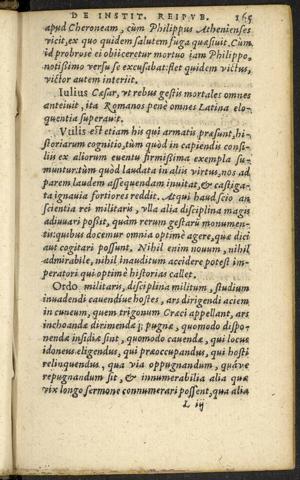 DE INSTIT. REIPVB. 165
apud Cheroneam, cùm Philippus Athenienses
vicit, ex quo quidem salutem fuga quæsiuit. Cum
id probrose ei obiiceretur mortuo iam Philippo,
notissimo versu se excusabat: flet quidem victus,
victor autem interiit.
Iulius Cæsar, vt rebus gestis mortales omnes
anteiuit, ita Romanos penè omnes Latina elo-
quentia superauit.
Vtilis est etiam his qui armatis præsunt, hi-
storiarum cognitio, tùm quòd in capiendis consi-
liis ex aliorum euentu firmissima exempla su-
muntur: tùm quòd laudata in aliis virtus, nos ad
parem laudem assequendam inuitat, & castiga-
ta ignauia fortiores reddit. Atqui haud scio an
scientia rei militaris, vlla alia disciplina magis
adiuuari possit, quàm rerum gestarū monumen-
tis: quibus docemur omnia optimè agere, quæ dici
aut cogitari possunt. Nihil enim nouum, nihil
admirabile, nihil inauditum accidere potest im-
peratori qui optimè historias callet.
Ordo militaris, disciplina militum, studium
inuadendi cauendíue hostes, ars dirigendi aciem
in cuneum, quem trigonum Græci appellant, ars
inchoandæ dirimendæq; pugnæ, quomodo dispo-
nendæ insidiæ sint, quomodo cauendæ, qui locus
idoneus eligendus, qui præoccupandus, qui hosti
relinquendus, qua via oppugnandum, quáve
repugnandum sit, & innumerabilia alia quæ
vix longo sermone connumerari possent, qua alia
L iij